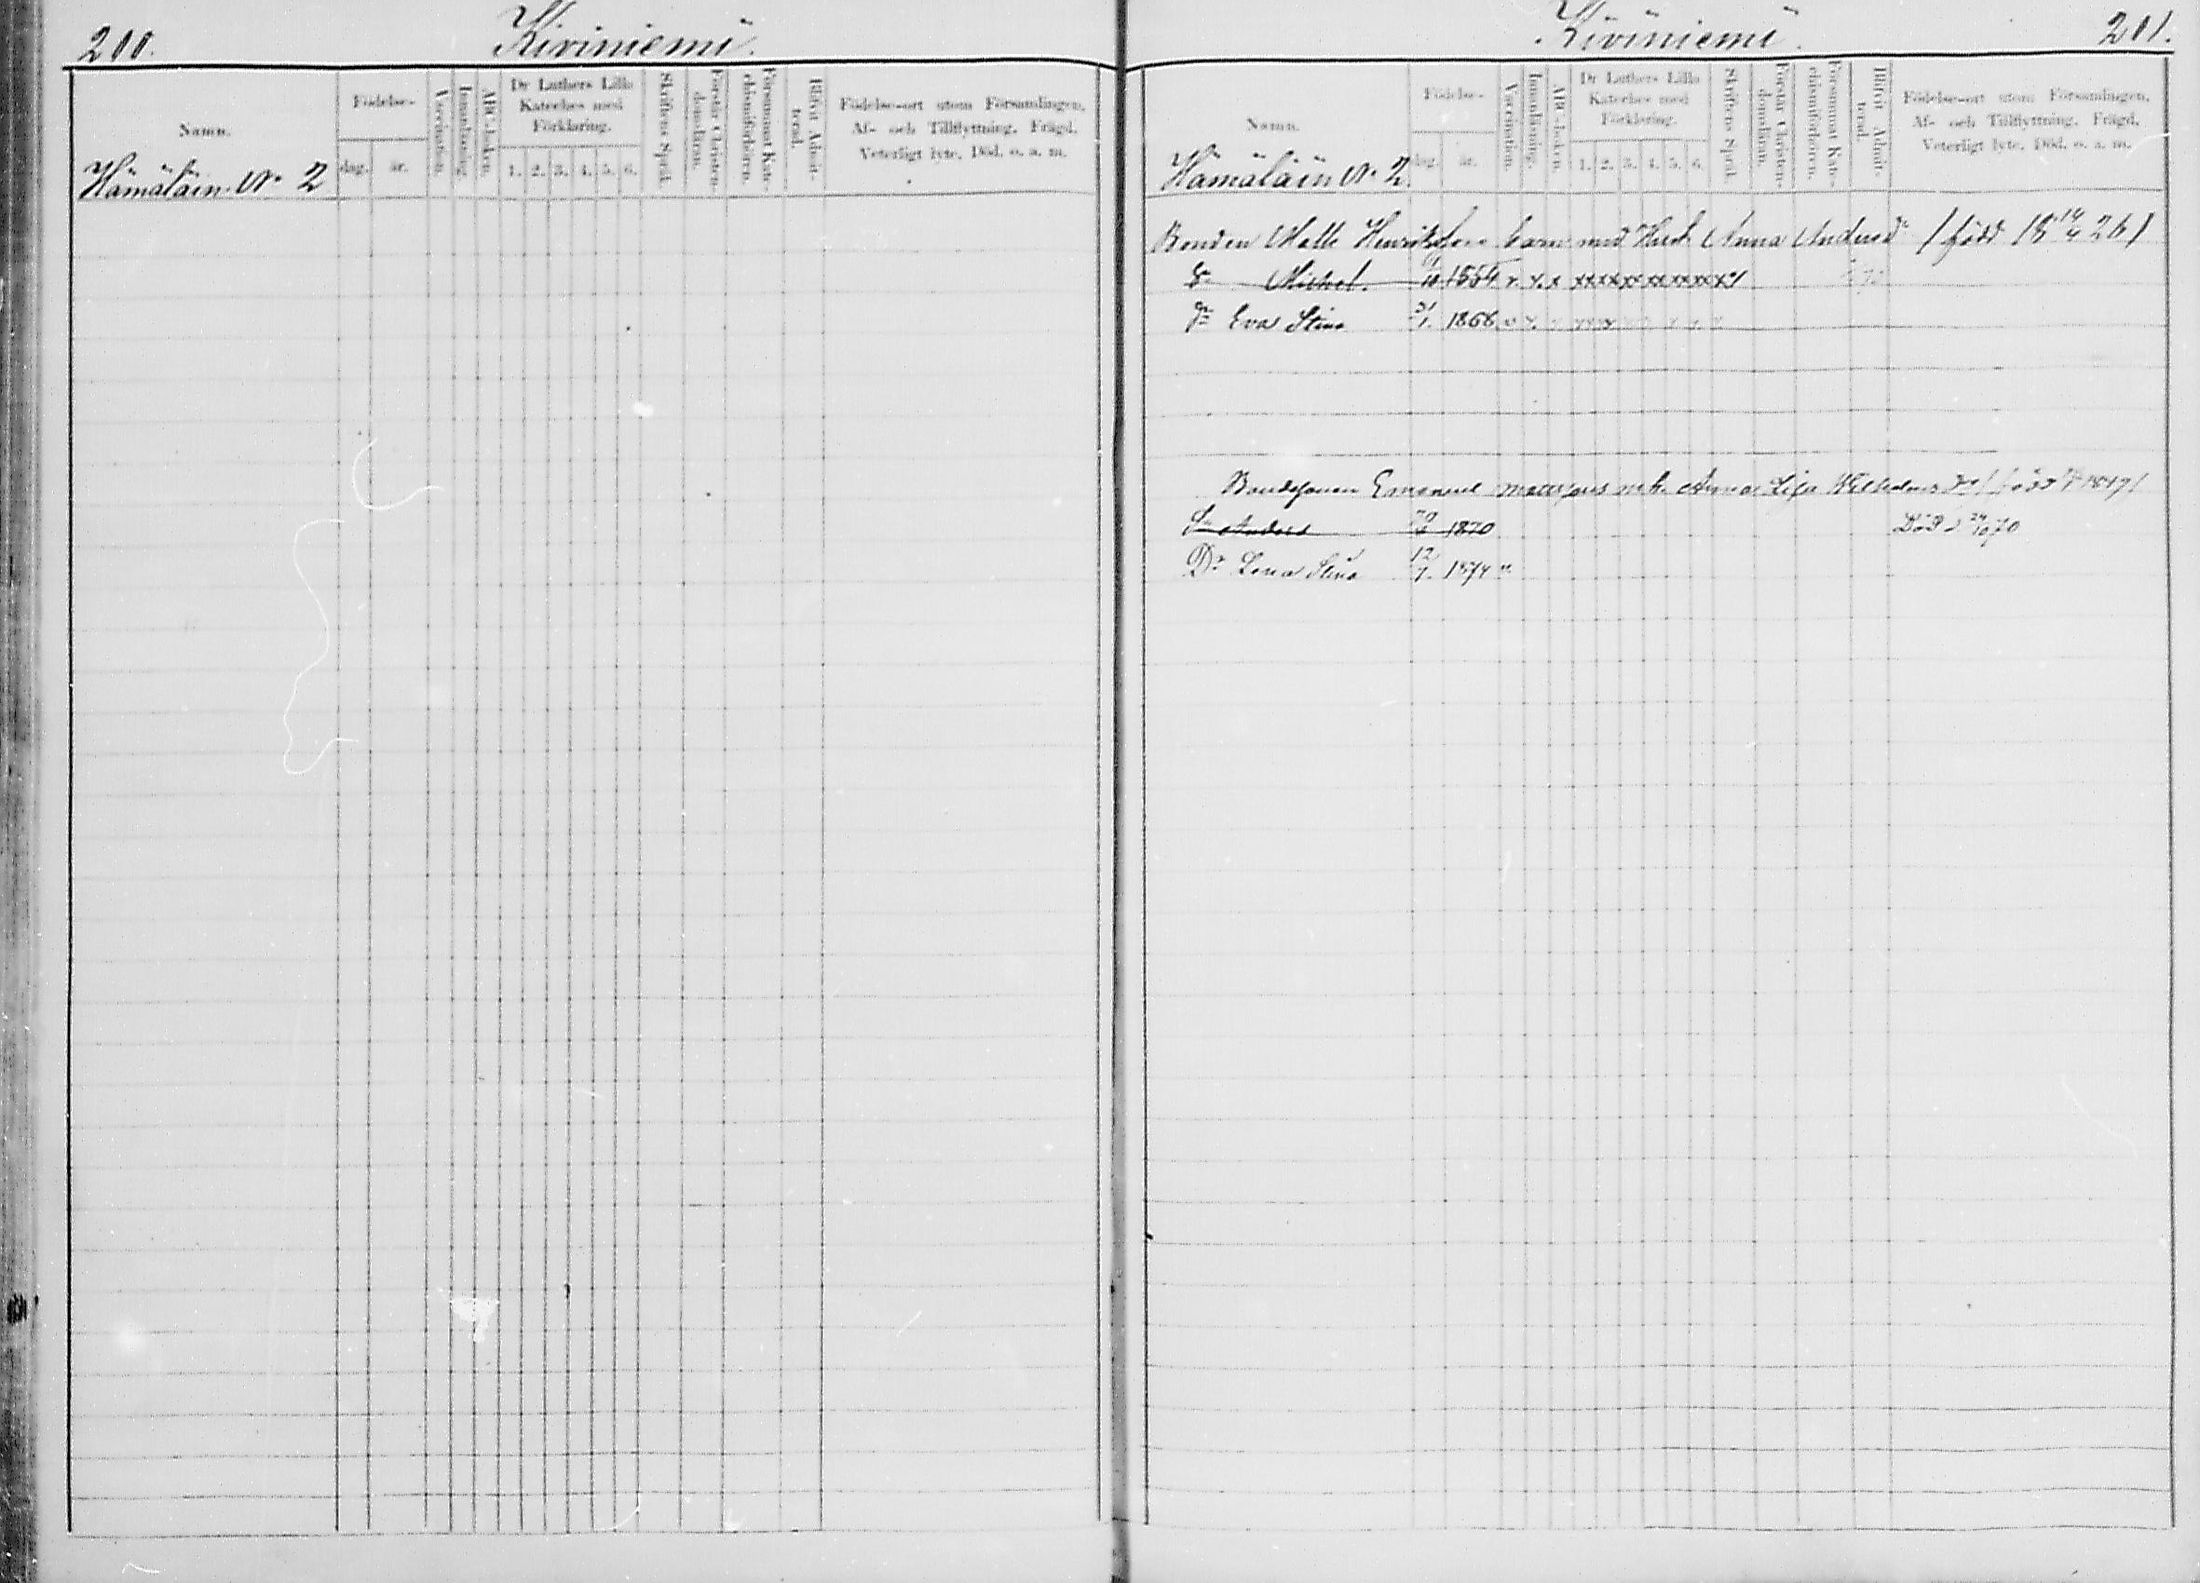 200.
Kiviniemi.
Namn.
Födelse-
dag. år.
Vaccination.
Innanläsning.
ABC-boken.
Dr Luthers Lilla
Kateches med
Förklaring.
1. 2. 3. 4. 5. 6.
Skriftens Språk.
Förstår Christen-
domsläran.
Försummat Kate-
chismiförhören.
Blifvit Admit-
terad.
Födelse-ort utom Församlingen.
Af- och Tillflyttning. Frägd.
Veterligt lyte. Död. o. a. m.
Hämäläin N:o 2
Kiviniemi.
201.
Namn.
Födelse-
dag. år.
Vaccination.
Innanläsning.
ABC-boken.
Dr Luthers Lilla
Kateches med
Förklaring.
1. 2. 3. 4. 5. 6.
Skriftens Språk.
Förstår Christen-
domsläran.
Försummat Kate-
chismiförhören.
Blifvit Admit-
terad.
Födelse-ort utom Församlingen.
Af- och Tillflyttning. Frägd.
Veterligt lyte. Död. o. a. m.
Hämäläin N:o 2.
Bonden Matts Henriksons barn med Hust. Anna Andersd:r / född 18 14/4 26 /
S:n Michel. 1854 v. x. x xxxxxxxxxxxxx
D:r Eva Stina 31/1. 1866 v x
Bondesonen Emanuel Mattsons m h. Anna Lisa Wilhelms d:r / född 1847 /
S:n Anders 1870 Död d 24/10 70
D:r Lena Stina 12/7. 1874 "